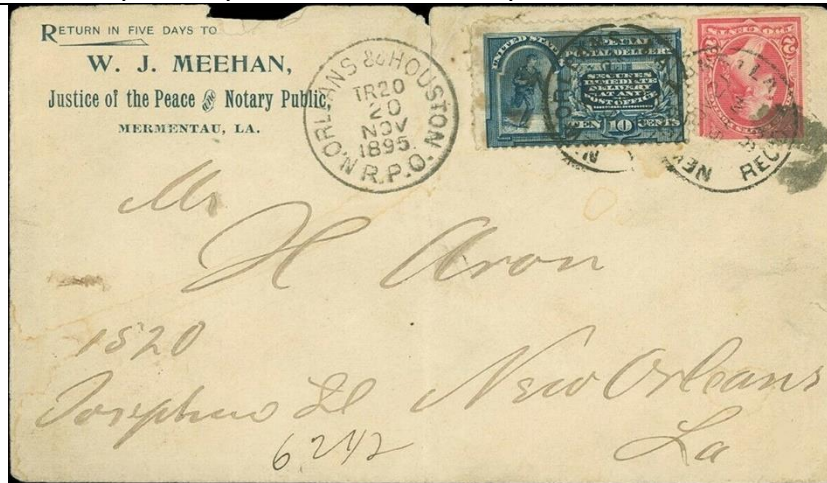 RETURN IN FIVE DAYS TO
W. J. MEEHAN,
Justice of the Peace and Notary Public,
MERMENTAU, LA.
N. ORLEANS & HOUSTON
TR20
20
NOV
1895.
R.P.O.
UNITED STATES
SPECIAL
POSTAL DELIVERY
SECURES
IMMEDIATE
DELIVERY
AT ANY
POST OFFICE
TEN 10 CENTS
NEW
REC'D
Mr
H Aron
1520
Josephine St New Orleans
6242 La